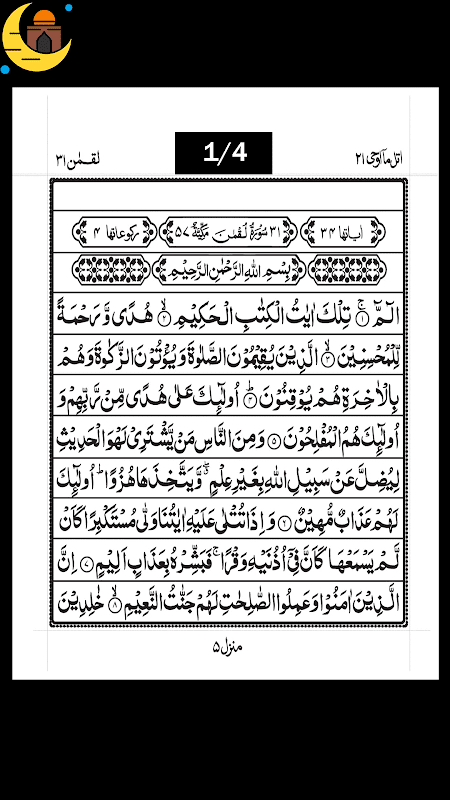 1/4
اتل مآ اوحی ۲۱
لقمٰن ۳۱
اٰیاتها ۳۴
۳۱ سُوْرَةُ لُقْمٰنَ مَكِّيَّةٌ ۵۷
رکوعاتها ۴
بِسْمِ اللّٰهِ الرَّحْمٰنِ الرَّحِيْمِ
الٓمّٓ ۚ‏﴿۱﴾ تِلْكَ اٰيٰتُ الْكِتٰبِ الْحَكِيْمِ ۙ‏﴿۲﴾ هُدًى وَّرَحْمَةً
لِّلْمُحْسِنِيْنَ ۙ‏﴿۳﴾ الَّذِيْنَ يُقِيْمُوْنَ الصَّلٰوةَ وَيُؤْتُوْنَ الزَّكٰوةَ وَهُمْ
بِالْاٰخِرَةِ هُمْ يُوْقِنُوْنَ ؕ‏﴿۴﴾ اُولٰٓئِكَ عَلٰى هُدًى مِّنْ رَّبِّهِمْ وَ
اُولٰٓئِكَ هُمُ الْمُفْلِحُوْنَ ﴿۵﴾ وَمِنَ النَّاسِ مَنْ يَّشْتَرِيْ لَهْوَ الْحَدِيْثِ
لِيُضِلَّ عَنْ سَبِيْلِ اللّٰهِ بِغَيْرِ عِلْمٍ ۖۗ وَّيَتَّخِذَهَا هُزُوًا ؕ اُولٰٓئِكَ
لَهُمْ عَذَابٌ مُّهِيْنٌ ﴿۶﴾ وَاِذَا تُتْلٰى عَلَيْهِ اٰيٰتُنَا وَلّٰى مُسْتَكْبِرًا كَاَنْ
لَّمْ يَسْمَعْهَا كَاَنَّ فِيْٓ اُذُنَيْهِ وَقْرًا ۚ فَبَشِّرْهُ بِعَذَابٍ اَلِيْمٍ ﴿۷﴾ اِنَّ
الَّذِيْنَ اٰمَنُوْا وَعَمِلُوا الصّٰلِحٰتِ لَهُمْ جَنّٰتُ النَّعِيْمِ ۙ‏﴿۸﴾ خٰلِدِيْنَ
منزل ۵